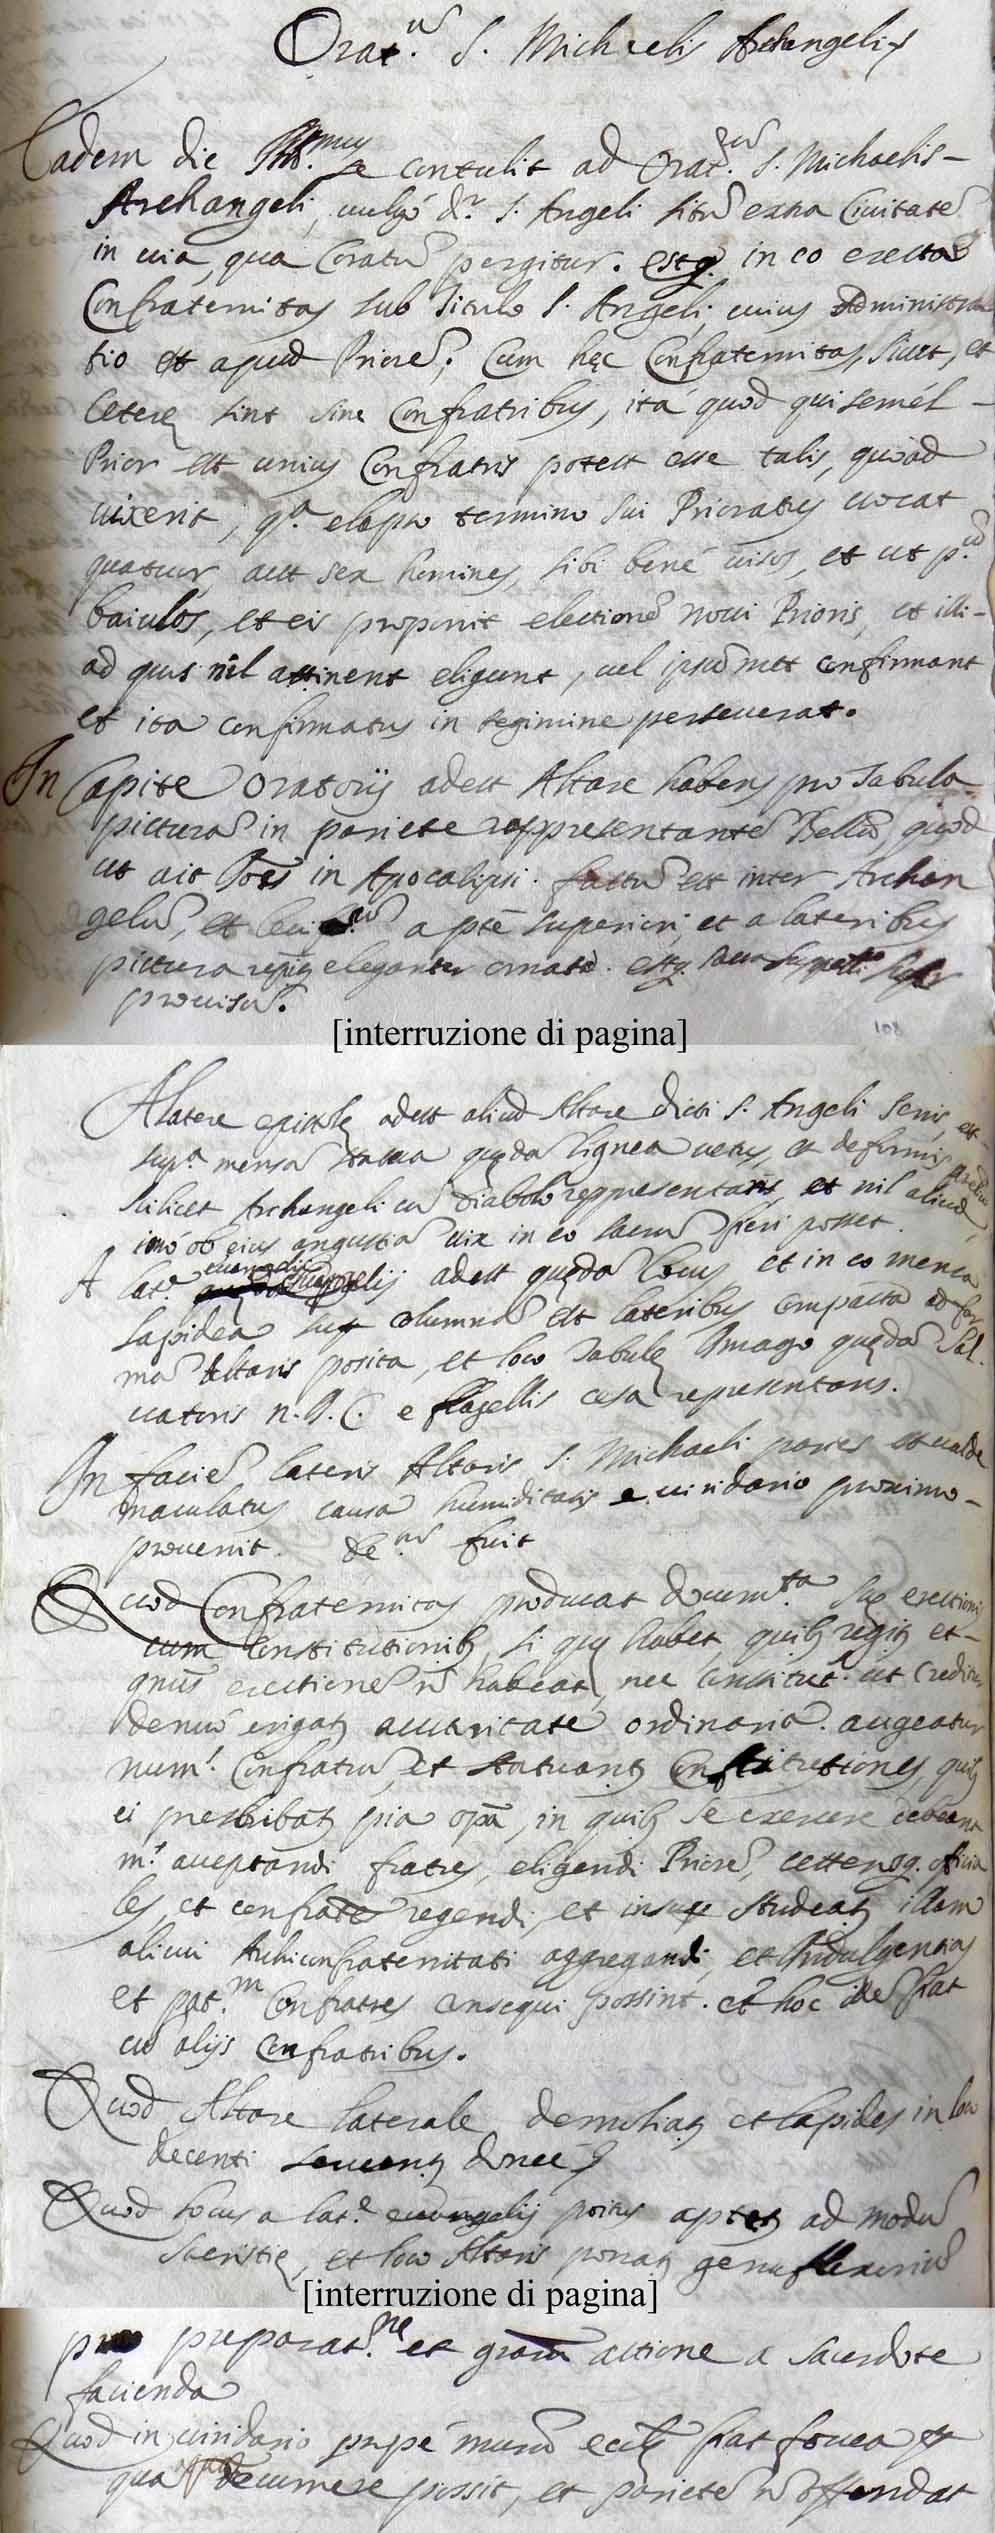 Orat.m S. Michaelis Archangelis
Eadem die Ill.mus se contulit ad Orat.um S. Michaelis
Archangeli, vulgò d.r S. Angeli sitũ extra Civitatẽ
in via, qua Coratũ pergitur. estq. in eo erecta
Confraternitas sub titulo S. Angeli, cuius Administra
tio est apud Priorẽ; Cum hęc Confraternitas, sicut, et
Ceterę sint sine Confratribus, ità quod qui semèl
Prior est unius Confratris potest esse talis, quòad
vixerit, q.a elapso termino sui Prioratus vocat
quatuor, aut sex homines, sibi benè visos, et ut p.m
baiulos, et eis proponit electionẽ novi Prioris, et illi
ad quos nil attinent eligunt, vel ipsũmet confirmant
et ita confirmatus in regimine perseverat.
In Capite Oratorij adest Altare habens pro Tabula
picturã in pariete reppresentantẽ Bellũ, quod
ut ait Joẽs in Apocalipsi. factũ est inter Archan
gelũ, et Lucif.um a ptẽ superiori, et a lateribus
pictura eleganter ornatũ. estq.
provisũ.
[interruzione di pagina]
A latere epistolę adest aliud Altare dicti S. Angeli Senis, et
sup.a mensã statua quędã lignea vetus, et deformis
scilicet Archangeli cũ diabolo reppresentans, et nil aliud,
imò ob eius angustiã vix in eo sacrũ fieri posset.
A lat.e evangelij adest quędã locus, et in eo mensa
lapidea sup columnã et lateribus compacta ad for
mã Altaris posita, et loco Tabulę Imago quędã Sal
vatoris n. J. C. e flagellis cesa representans.
In facie lateris Altaris S. Michaeli paries est valde
maculatus causa humiditatis e viridario proximo
provenit. de.m fuit
Quod Confraternitas producat docum.ta suę erectionis
cum Constitutionib., si quas habet, quib. regit. et
quas erectionẽ nõ habeat, nec constitut. ut creditur
denuò erigat. auctoritate ordinaria. augeatur
num.s Confratrũ, et statuant. Constitutiones, quib.
ei prescribat. pia opã, in quib. se exercere debeant
m.s acceptandi fratres, eligendi Priorẽ, ceterosq. officia
les, et confratẽs regendi, et insup studeat. illam
alicui Archiconfraternitati aggregandi, et Indulgentias
et pat.m Confratres consequi possint. et hoc idẽ fiat
cũ alijs Confratribus.
Quod Altare laterale demoliat. et lapides in loco
decenti servent. donec
Quod locus a lat.e evangelij positus aptet. ad modũ
Sacristię, et loco Altaris ponat. genuflexoriũ
[interruzione di pagina]
pro preparat.ne et gratiarũ actione a sacerdote
facienda
Quod in viridario propè murũ ecclę fiat fovea et
qua aqua decurrere possit, et parietẽ nõ offendat